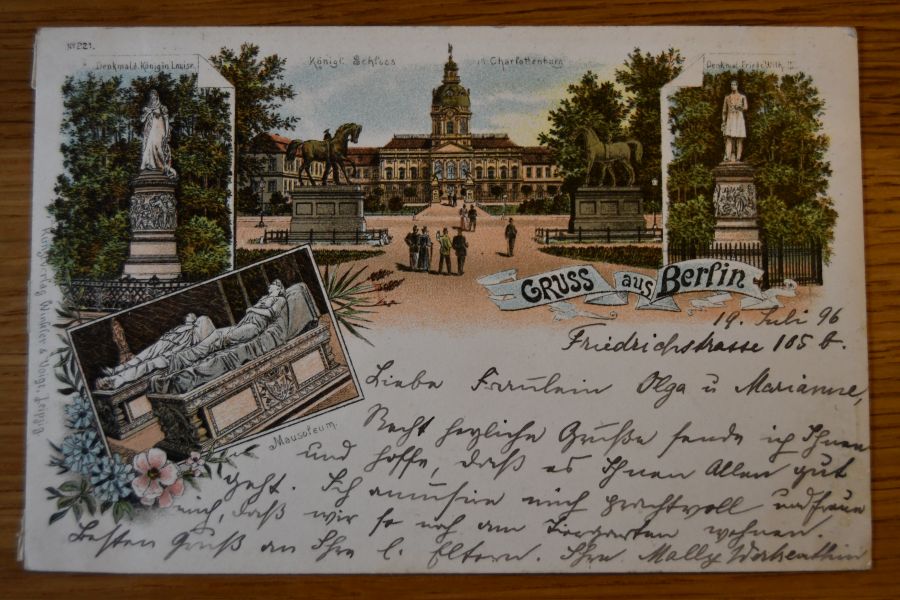 No 221.
Denkmal d. Königin Louise.
Königl. Schloss in Charlottenburg
Denkmal Friedr. Wilh. II
GRUSS aus Berlin
Mausoleum.
Kunstverlag Winkler & Voigt, Leipzig
19. Juli 96
Friedrichstrasse 105 b.
Liebe Fräulein Olga u Marianne,
Recht herzliche Grüße sende ich Ihnen
und hoffe, daß es Ihnen Allen gut
geht. Ich amüsire mich prachtvoll und freue
mich, daß wir so nah am Tiergarten wohnen.
Besten Gruß an Ihre l. Eltern. Ihre Mally